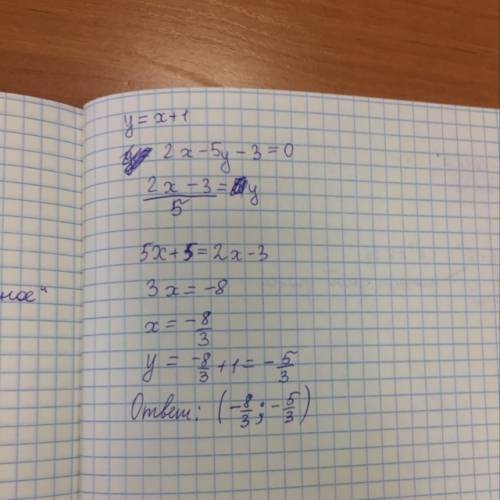 y = x+1
2x-5y-3=0
(2x-3)/5 = y
ное"
5x+5=2x-3
3x=-8
x = -8/3
y = -8/3 +1 = -5/3
Ответ: (-8/3; -5/3)